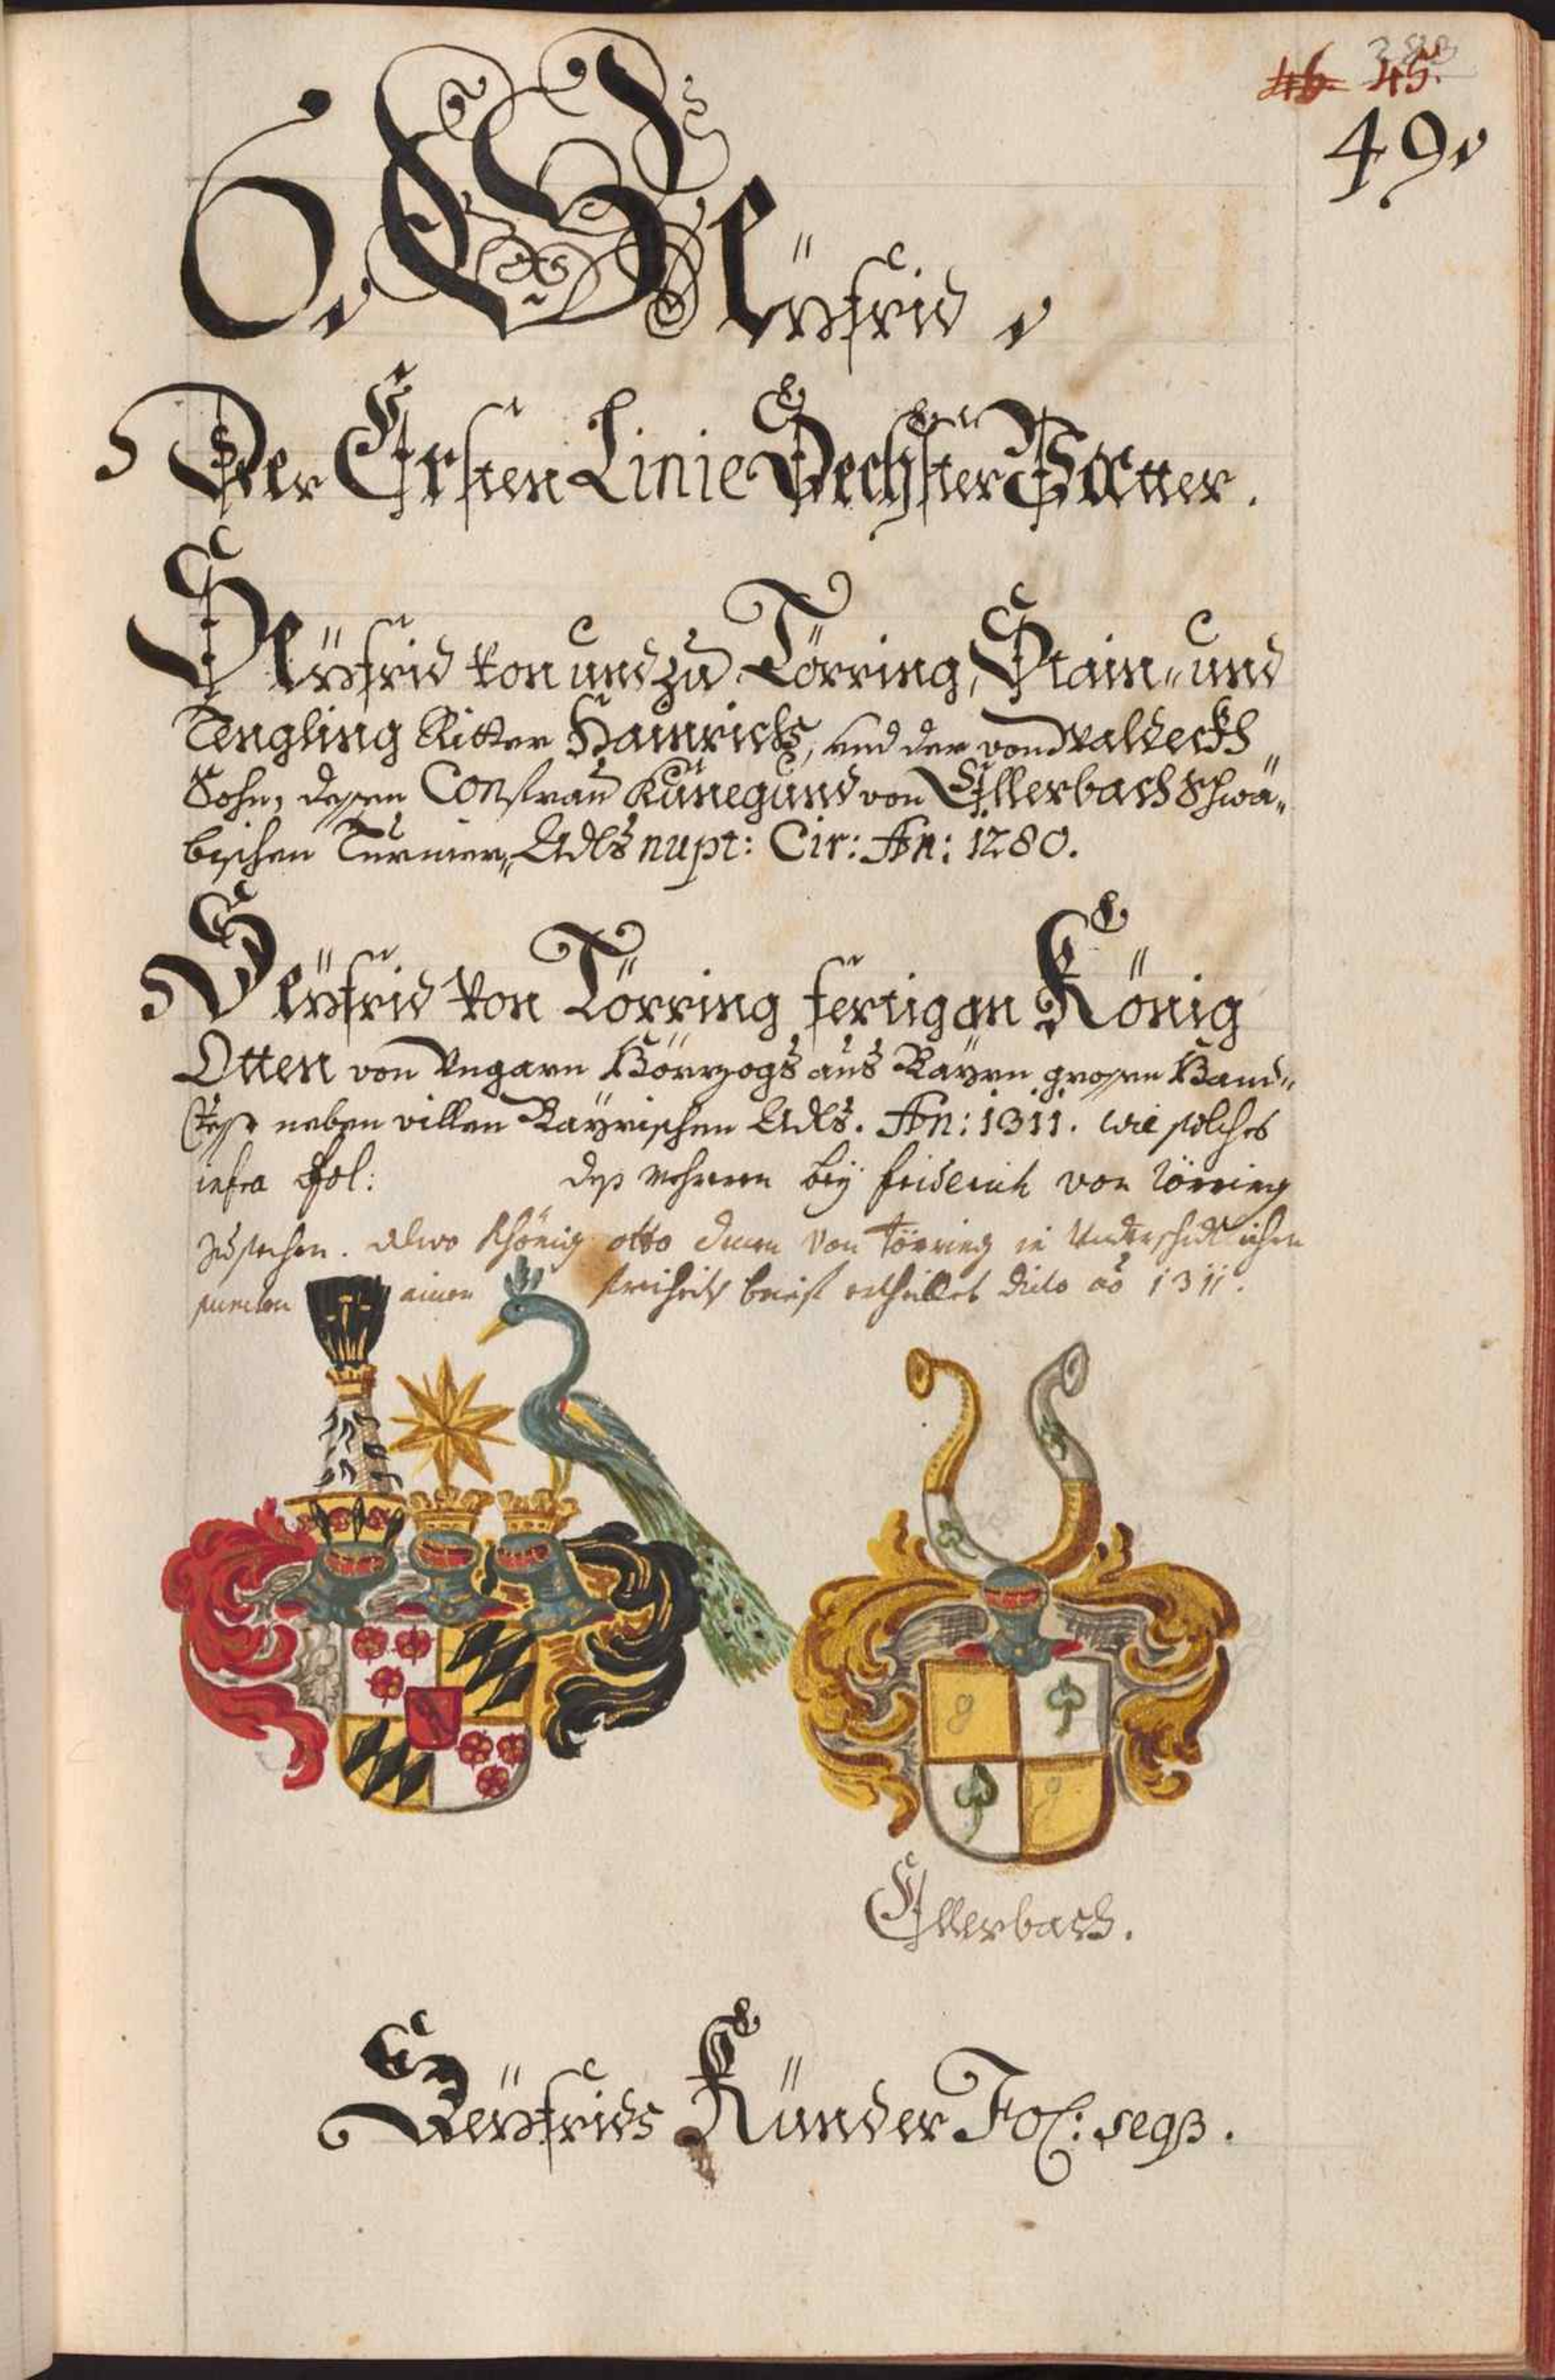 46. 45.
49.
6. Seÿfrid.
Der Ersten Linie Sechster Vatter.
Seÿfrid von und zu Törring, Stain- und
Tengling Ritter Hainrichs, und der von Waldeckh
Sohn, dessen Consfrau Künegund von Ellerbach Schwä-
bischen Turnier- Adls nupt: Cir: An: 1280.
Seÿfrid von Törring fertigan König
Otten von Ungarn Hörzogs aus Bayrn grossen Hand-
veste neben villen Bayrischen Adls. An: 1311. wie solches
infra Fol: des mehrern beÿ Friderich von Törring
zusechen. Alwo Khönig Otto denen von Törring in Underschidlichen
puncten ainen freiheits brieff ertheillet dicto ao 1311.
Ellerbach.
Seÿfrids Künder Fol: seqß.